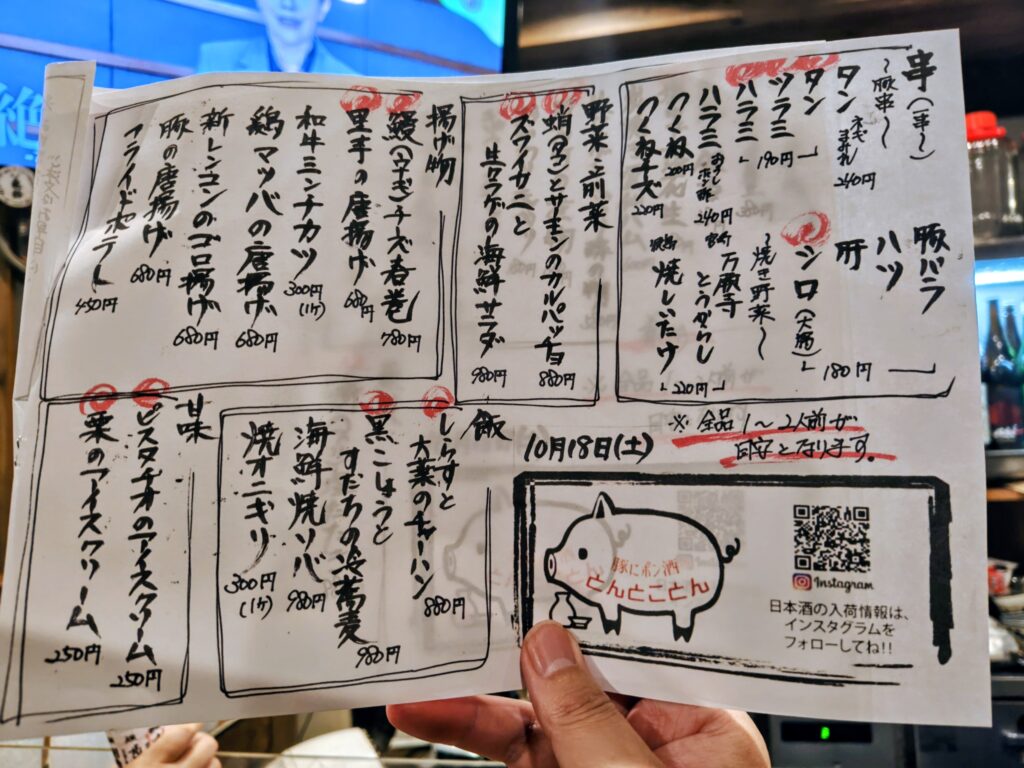 串(一串〜)
〜豚串〜
タン ネギまみれ 240円
タン
ツラミ
ハラミ
190円
ハラミ おろしポン酢 240円
つくね 200円
つくねチーズ 220円
豚バラ
ハツ
肝
シロ(大腸)
180円
〜焼き野菜〜
万願寺とうがらし
焼しいたけ
220円
野菜、前菜
蛸(タコ)とサーモンのカルパッチョ 880円
ズワイカニと生クラゲの海鮮サラダ 980円
揚げ物
鰻(ウナギ)チーズ春巻 780円
里芋の唐揚げ 680円
和牛ミンチカツ 300円(1ケ)
鶏マツバの唐揚げ 680円
新レンコンのゴロ揚げ 680円
豚の唐揚げ 680円
フライドポテト 450円
※全品1〜2人前が
目安となります。
10月18日(土)
飯
しらすと大葉のチャーハン 880円
黒こしょうとすだちの冷蕎麦 980円
海鮮焼ソバ 980円
焼オニギリ 300円(1ケ)
甘味
ピスタチオのアイスクリーム 250円
栗のアイスクリーム 250円
豚にポン酒
とんとことん
Instagram
日本酒の入荷情報は、
インスタグラムを
フォローしてね!!
絶